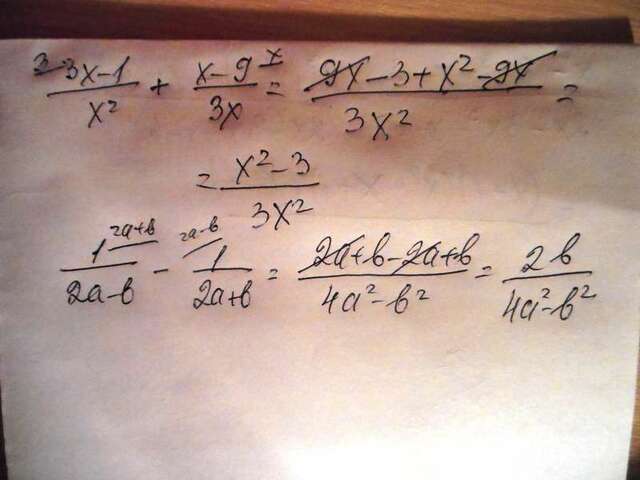 ³⁻ 3x-1 / x² + x-9 ˣ / 3x = 9x-3+x²-9x / 3x² =
= x²-3 / 3x²
1 ²ᵃ⁺ᵇ / 2a-b - ²ᵃ⁻ᵇ 1 / 2a+b = 2a+b-2a+b / 4a²-b² = 2b / 4a²-b²